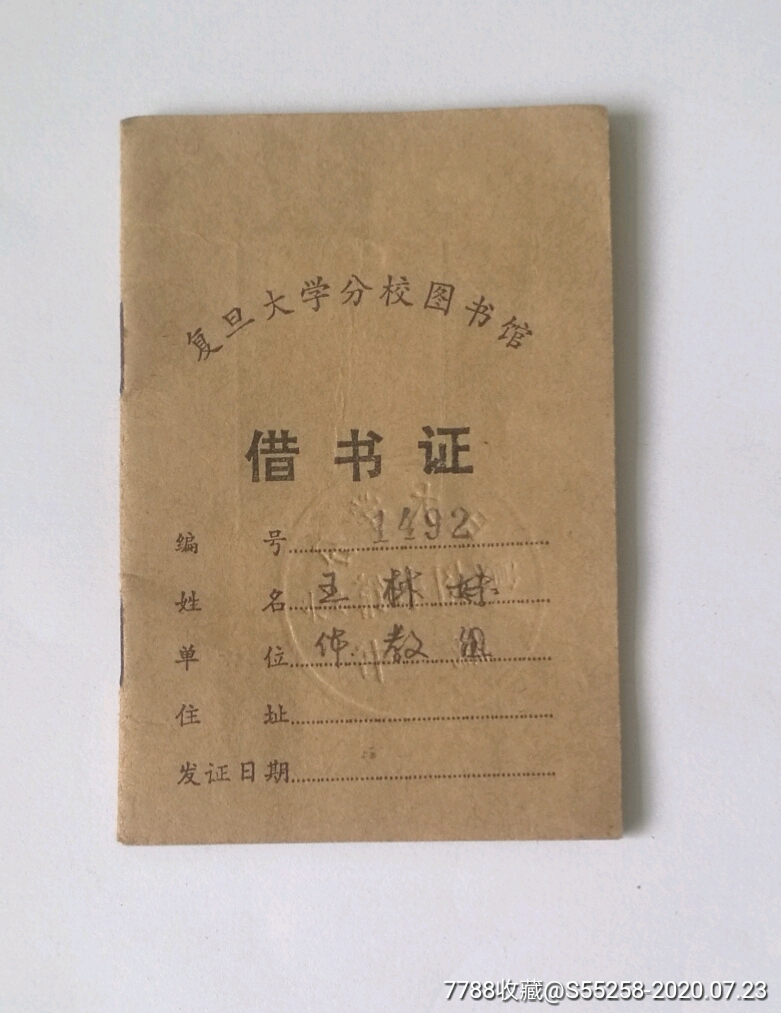 复旦大学分校图书馆
借书证
编号 1492
姓名 王林妹
单位 体教组
住址
发证日期
7788收藏@S55258-2020.07.23